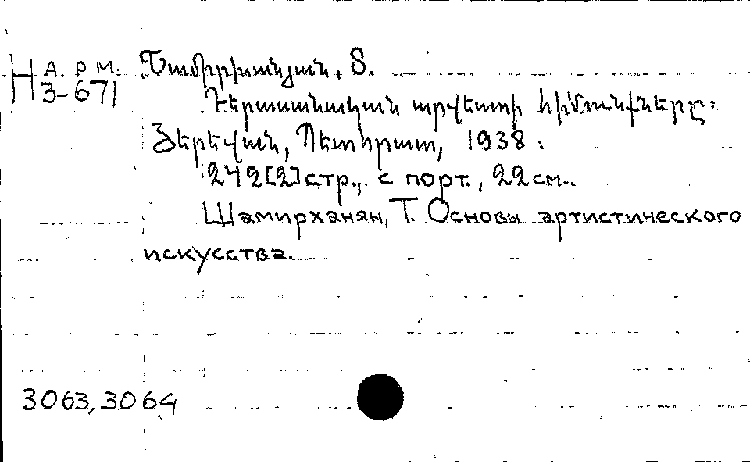 Н А.Р.М.
3-671
Շամիրխանյան, Տ.
Դերասանական արվեստի հիմունքները:
Յերեվան, Պետհրատ, 1938:
242[2]стр., с порт., 22см.
Шамирханян, Т. Основы артистического
искусства.
3063,3064